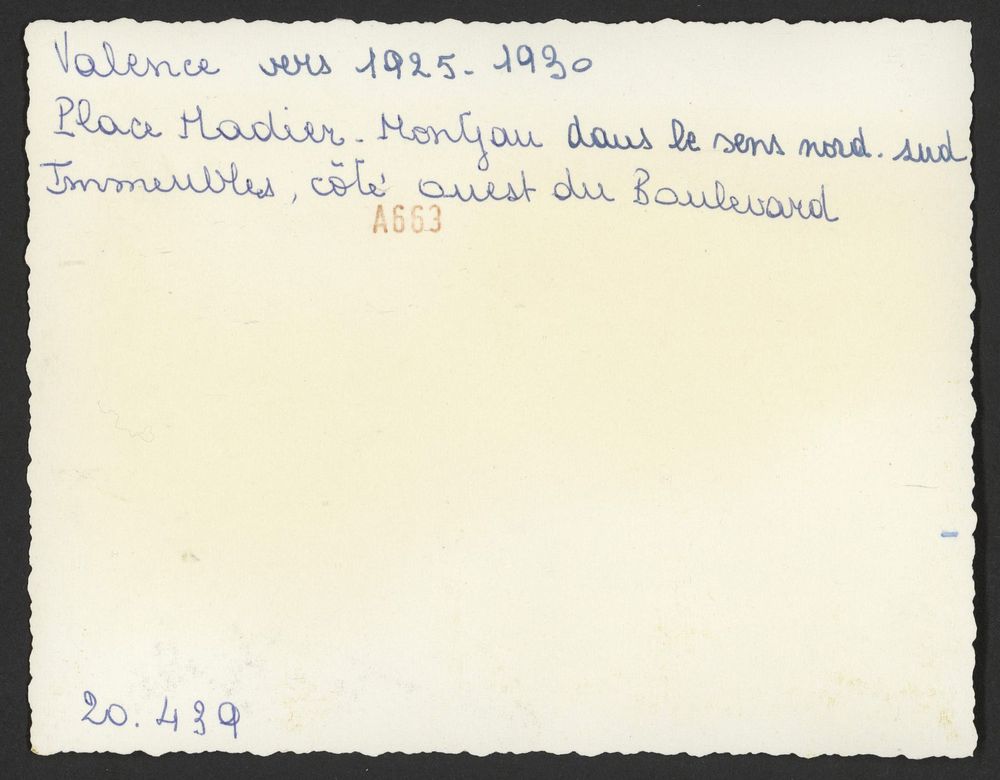 Valence vers 1925-1930
Place Madier-Montjau dans le sens nord-sud
Immeubles, côté ouest du Boulevard
A663
20.439